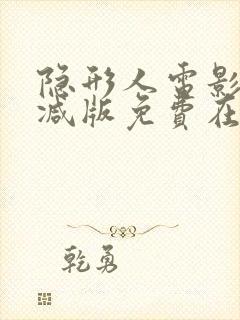 隐形人雷影
减版免费在
乾勇